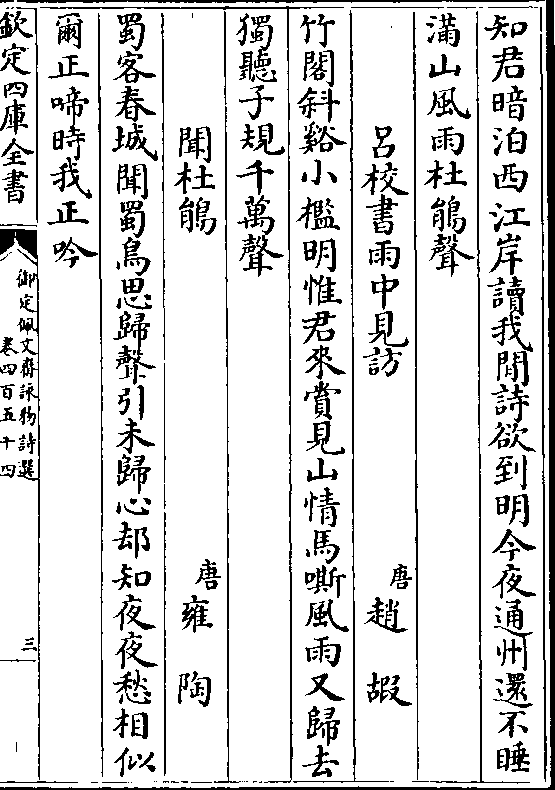 知君暗泊西江岸讀我閒詩欲到明今夜通州還不睡
滿山風雨杜鵑聲
呂校書雨中見訪
唐趙嘏
竹閣斜谿小檻明惟君來賞見山情馬嘶風雨又歸去
獨聽子規千萬聲
聞杜鵑
唐雍陶
蜀客春城聞蜀鳥思歸聲引未歸心却知夜夜愁相似
爾正啼時我正吟
欽定四庫全書
御定佩文齋詠物詩選
卷四百五十四
三